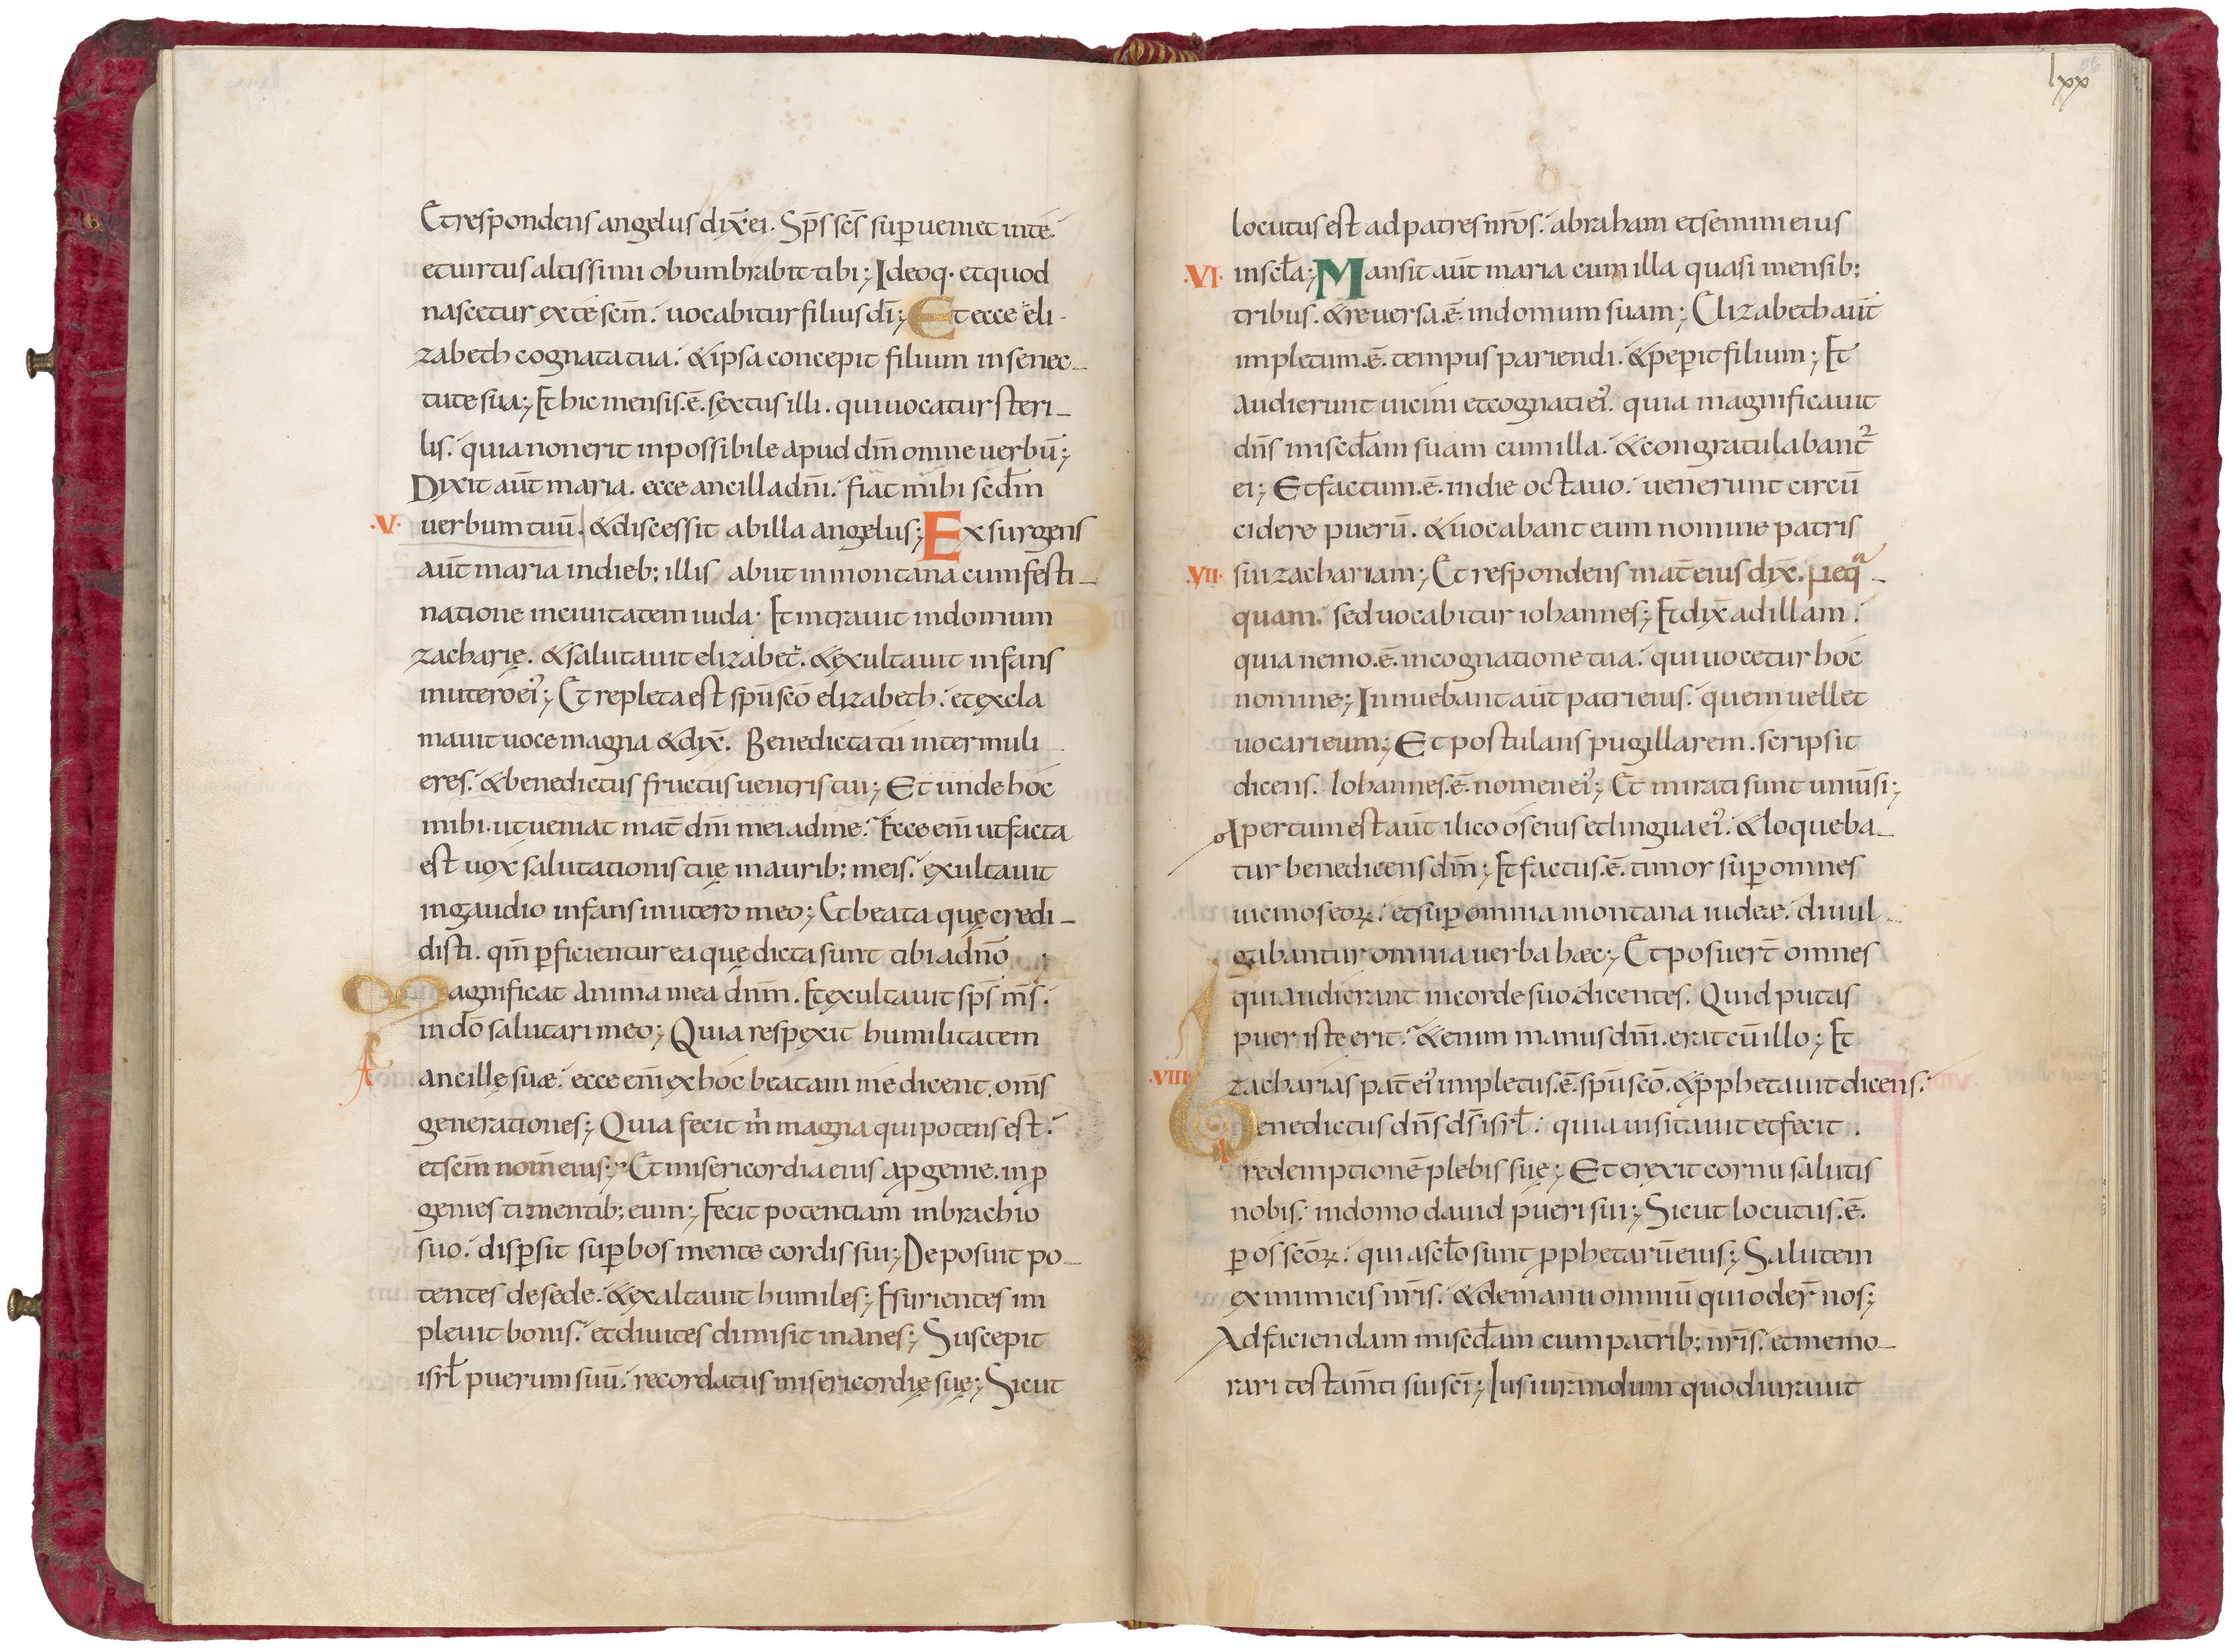 Et respondens angelus dix̄ ei. Sp̄s sc̄s sup̱ueniet in te.
et uirtus altissimi obumbrabit tibi; Ideoq· et quod
nascetur ex te sc̄m. uocabitur filius dī; Et ecce eli-
zabeth cognata tua. & ipsa concepit filium in senec-
tute sua; Et hic mensis .ē. sextus illi. qui uocatur steri-
lis. quia non erit inpossibile apud dm̄ omne uerbū;
Dixit aūt maria. ecce ancilla dn̄i. fiat mihi scd̄m
·V· uerbum tuū. & discessit ab illa angelus; Exsurgens
aūt maria in dieb; illis abiit in montana cum festi-
natione in ciuitatem iuda· Et intrauit in domum
zacharię. & salutauit elizabet̄. & exultauit infans
in utero ei'; Et repleta est sp̄u sc̄o elizabeth. et excla
mauit uoce magna & dix̄. Benedicta tu inter muli
eres. & benedictus fructus uentris tui; Et unde hoc
mihi. ut ueniat mat̄ dn̄i mei ad me. Ecce em̄ ut facta
est uox salutationis tuę in aurib; meis. exultauit
in gaudio infans in utero meo; Et beata quę credi-
disti. qm̄ p̱ficientur ea quę dicta sunt tibi a dn̄o ;
Magnificat anima mea dnm̄. Et exultauit sp̄s m̄s.
in dō salutari meo; Quia respexit humilitatem
ancillę suæ. ecce em̄ ex hoc beatam me dicent. om̄s
generationes; Quia fecit m̄ magna qui potens est.
et sc̄m nom̄ eius; Et misericordia eius a p̱genie. in p̱
genies timentib; eum; Fecit potentiam in brachio
suo. disp̱sit sup̱bos mente cordis sui; Deposuit po-
tentes de sede. & exaltauit humiles; Esurientes im
pleuit bonis. et diuites dimisit inanes; Suscepit
isrł puerum suū. recordatus misericordię suę; Sicut
lxx
86
locutus est ad patres nr̄os. abraham et semini eius
·VI· in scła; Mansit aūt maria cum illa quasi mensib;
tribus. & reuersa .ē. in domum suam; Elizabeth aūt
impletum .ē. tempus pariendi. & pep̱it filium; Et
audierunt uicini et cognati ei'. quia magnificauit
dn̄s misc̄dam suam cum illa. & congratulabant²
ei; Et factum .ē. in die octauo. uenerunt circū
cidere puerū. & uocabant eum nomine patris
·VII· sui zachariam; Et respondens mat̄ eius dix̄. neq̄ᵃ-
quam. sed uocabitur iohannes; Et dix̄ ad illam.
quia nemo .ē. in cognatione tua. qui uocetur hoc
nomine; Innuebant aūt patri eius. quem uellet
uocari eum; Et postulans pugillarem. scripsit
dicens. Iohannes .ē. nomen ei'; Et mirati sunt uniūsi;
Apertum est aūt ilico os eius et lingua ei'. & loqueba-
tur benedicens dm̄; Et factus .ē. timor sup̱ omnes
uicinos eoꝝ. et sup̱ omnia montana iudeæ. diuul
gabantur omnia uerba hæc; Et posuer̄t omnes
qui audierant in corde suo. dicentes. Quid putas
puer iste erit. & enim manus dn̄i. erat cū illo; Et
·VIII· zacharias pat̄ ei' impletus .ē. sp̄u sc̄o. & p̱phetauit dicens.
Benedictus dn̄s ds̄ isrł. quia uisitauit et fecit.
redemptionē plebis suę; Et erexit cornu salutis
nobis. in domo dauid pueri sui; Sicut locutus .ē.
p̱ os sc̄oꝝ. qui a scło sunt p̱phetarū eius; Salutem
ex inimicis nr̄is. & de manu omniū qui oder̄ nos;
Ad faciendam misc̄dam cum patrib; nr̄is. et memo-
rari testam̄ti sui sc̄i; Iusiurandum quod iurauit